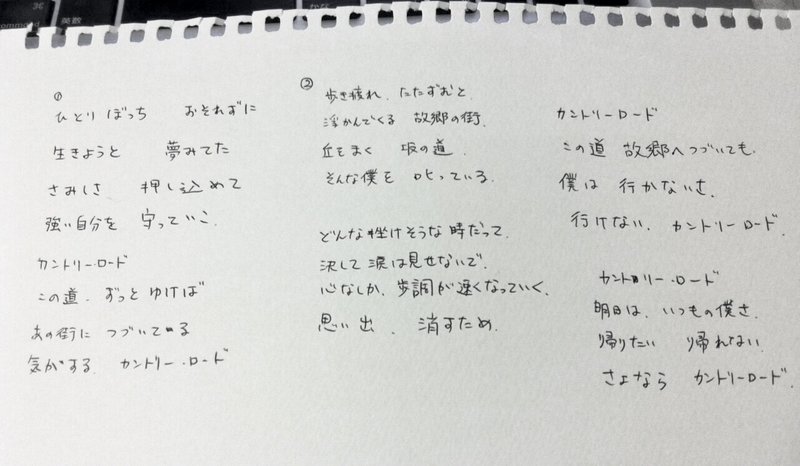 英数
かな
①
ひとりぼっち おそれずに
生きようと 夢みてた
さみしさ 押し込めて
強い自分を 守っていこ
カントリー・ロード
この道、ずっと ゆけば
あの街に つづいてる
気がする カントリー・ロード
②
歩き疲れ、たたずむと
浮かんでくる 故郷の街、
丘をまく 坂の道、
そんな僕を 叱っている。
どんな挫けそうな 時だって、
決して 涙は見せないで、
心なしか、歩調が速くなっていく、
思い出、消すため、
カントリーロード
この道 故郷へつづいても、
僕は 行かないさ、
行けない、カントリーロード、
カントリー・ロード
明日は、いつもの僕さ、
帰りたい 帰れない、
さよなら カントリーロード、